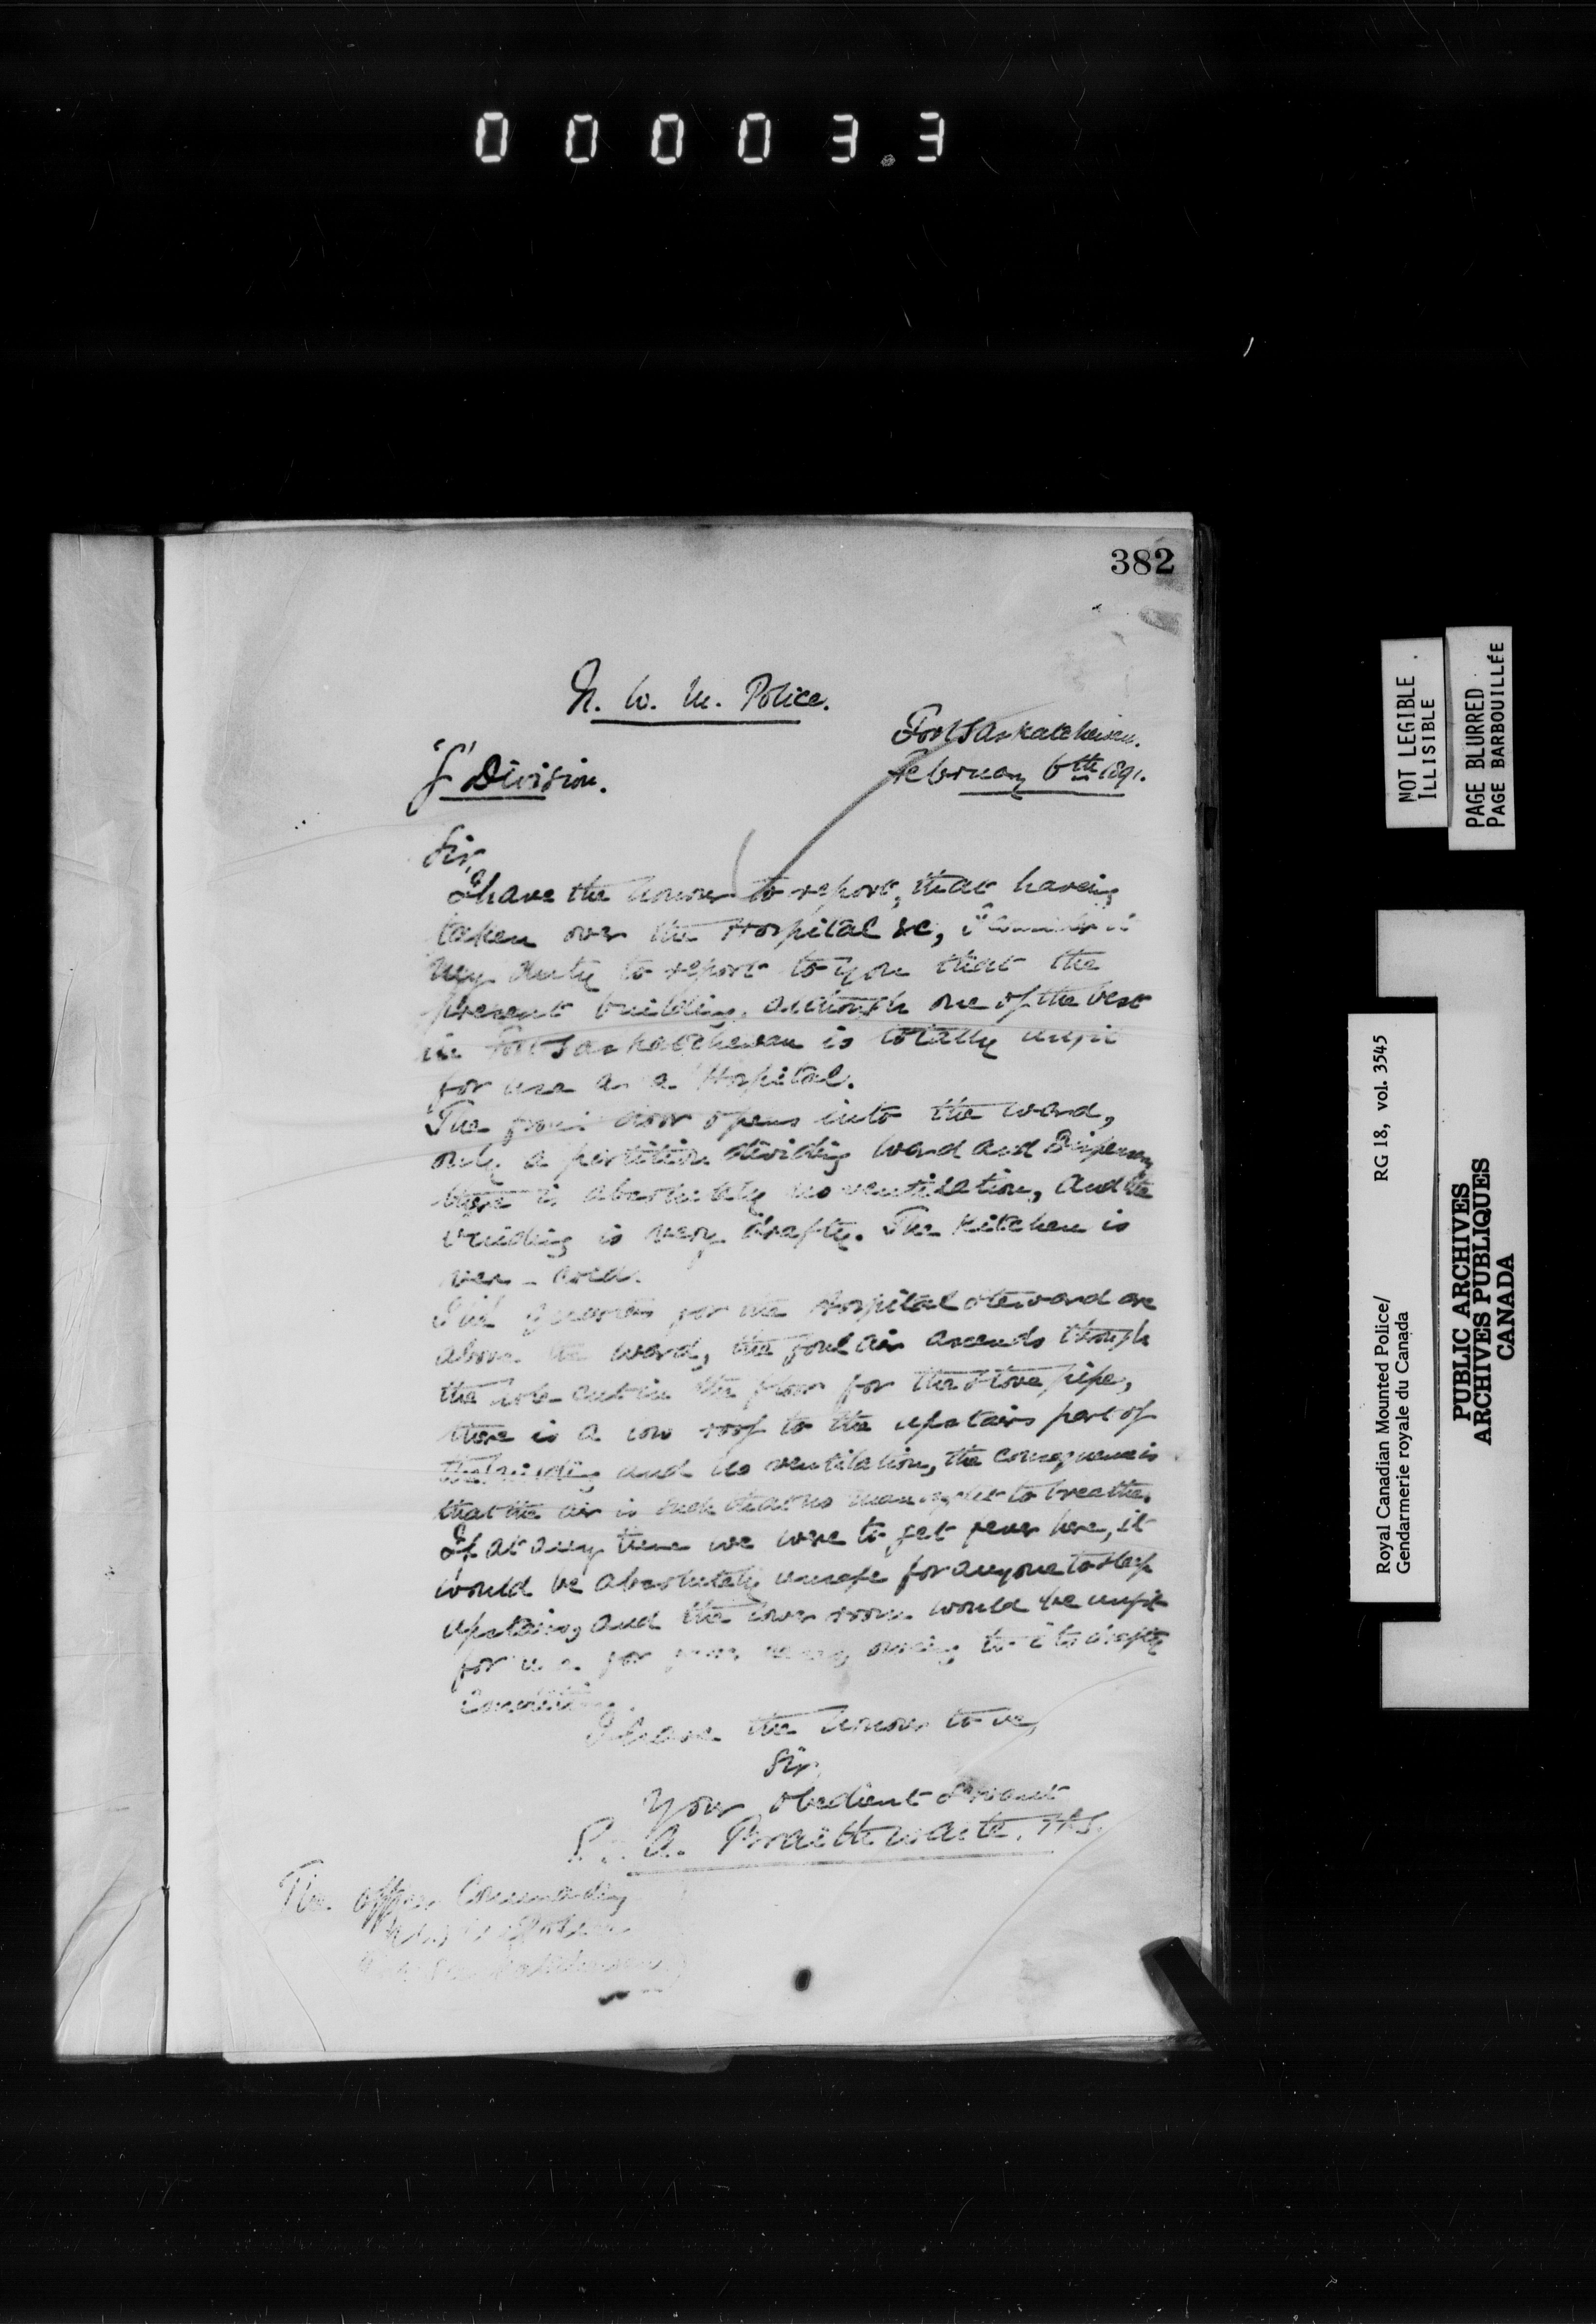 0 0 0 0 3.3
382
N. W. M. Police.
Fort Saskatchewan.
February 6th 1891.
Division.
Sir,
I have the honour to report, that having
taken over the Hospital &c, I consider it
my duty to report to you that the
present building, although one of the best
in Fort Saskatchewan is totally unfit
for use as a Hospital.
The front door opens into the ward,
only a partition dividing ward and Dispensary
there is absolutely no ventilation, and the
building is very drafty. The Kitchen is
very cold.
The quarters for the Hospital steward are
above the ward, the foul air ascends through
the hole cut in the floor for the stove pipe,
there is a low roof to the upstairs part of
the building and no ventilation, the consequence is
that the air is such that no man to breathe.
If at any time we were to get fever here, it
would be absolutely unsafe for anyone to sleep
upstairs, and the lower room would be unfit
for use for owing to its drafty
Condition.
I have the honour to be,
Sir,
Your obedient Servant
P. A. Braithwaite. H.S.
The Officer Commanding
NOT LEGIBLE
ILLISIBLE
PAGE BLURRED
PAGE BARBOUILLÉE
Royal Canadian Mounted Police/ RG 18, vol. 3545
Gendarmerie royale du Canada
PUBLIC ARCHIVES
ARCHIVES PUBLIQUES
CANADA